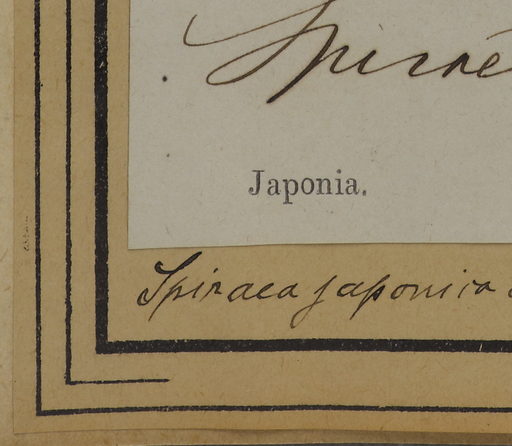 Spirae
Japonia.
Spiraea japonica